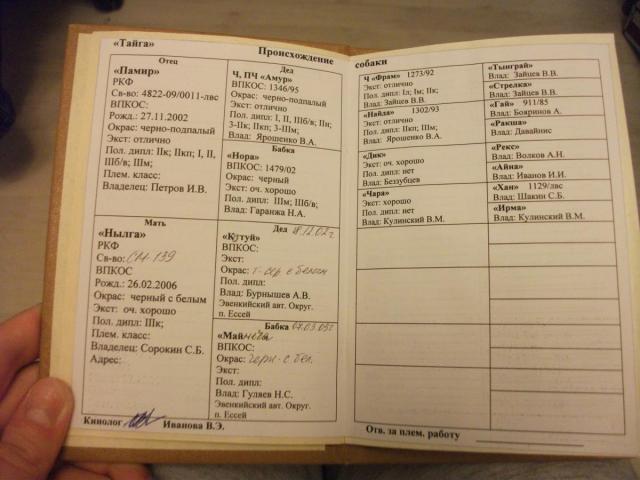 «Тайга»
Происхождение
собаки
Отец
«Памир»
РКФ
Св-во: 4822-09/0011-лвс
ВПКОС:
Рожд.: 27.11.2002
Окрас: черно-подпалый
Экст: отлично
Пол. дипл: IIк; IIкп; I, II,
IIIб/в; IIIм;
Плем. класс:
Владелец: Петров И.В.
Дед
Ч, ПЧ «Амур»
ВПКОС: 1346/95
Окрас: черно-подпалый
Экст: отлично
Пол. дипл: I, II, IIIб/в; IIн;
3-IIк; IIкп; 3-IIIм;
Влад: Ярошенко В.А.
Бабка
«Нора»
ВПКОС: 1479/02
Окрас: черный
Экст: оч. хорошо
Пол. дипл: IIIм; IIIб/в;
Влад: Гаранжа Н.А.
Мать
«Нылга»
РКФ
Св-во: СН-139
ВПКОС
Рожд.: 26.02.2006
Окрас: черный с белым
Экст: оч. хорошо
Пол. дипл: IIIк;
Плем. класс:
Владелец: Сорокин С.Б.
Адрес:
Дед
«Кутуй»
ВПКОС:
Экст:
Окрас: т-сер с белым
Пол. дипл:
Влад: Бурнышев А.В.
Эвенкийский авт. Округ.
п. Ессей
Бабка 07.03.03г
ВПКОС:
Окрас: черн. с бел.
Экст:
Пол. дипл:
Влад: Гуляев Н.С.
Эвенкийский авт. Округ.
п. Ессей
Кинолог Иванова В.Э.
Ч «Фрам» 1273/92
Экст: отлично
Пол. дипл: Iл; Iм; IIк;
Влад: Зайцев В.В.
«Найда» 1302/93
Экст: отлично
Пол. дипл: IIкп; IIIм;
Влад: Ярошенко В.А.
«Дик»
Экст: оч. хорошо
Пол. дипл: нет
Влад: Беззубцев
«Чара»
Экст: хорошо
Пол. дипл: нет
Влад: Кулинский В.М.
«Тынграй»
Влад: Зайцев В.В.
«Стрелка»
Влад: Зайцев В.В.
«Гай» 911/85
Влад: Бояринов А.
«Ракша»
Влад: Давайнис
«Рекс»
Влад: Волков А.Н.
«Айна»
Влад: Иванов И.И.
«Хан» 1129/лвс
Влад: Шакин С.Б.
«Ирма»
Влад: Кулинский В.М.
Отв. за плем. работу